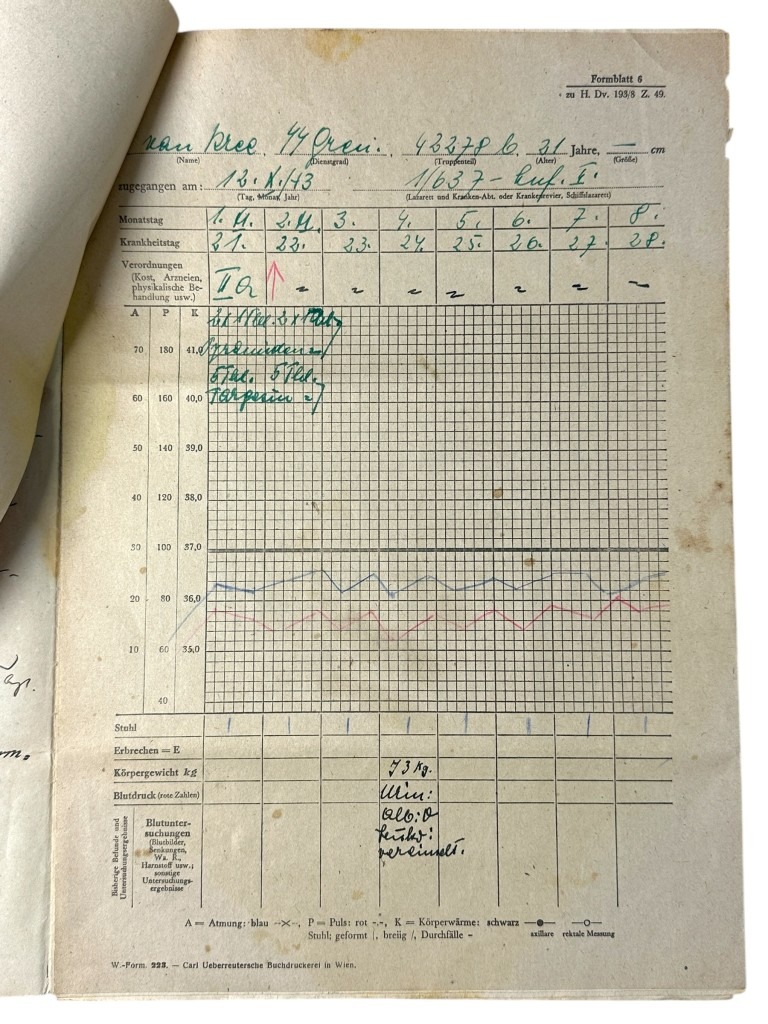 Formblatt 6
zu H. Dv. 193/8 Z. 49.
van Kree, ᛋᛋ Gren. 42278 b. 21 Jahre, — cm
(Name) (Dienstgrad) (Truppenteil) (Alter) (Größe)
zugegangen am: 12. X./43 1/637 - Inf. I.
(Tag, Monat, Jahr) (Lazarett und Kranken-Abt. oder Krankenrevier, Schiffslazarett)
Monatstag 1. 11. 2. 11. 3. 4. 5. 6. 7. 8.
Krankheitstag 21. 22. 23. 24. 25. 26. 27. 28.
Verordnungen
(Kost, Arzneien,
physikalische Be-
handlung usw.)
II a
A P K
2 x 1 Tbl. 2 x 1 Tbl.
70 180 41,0
5 Tbl. 5 Tbl.
60 160 40,0 Targesin
50 140 39,0
40 120 38,0
30 100 37,0
20 80 36,0
10 60 35,0
40
Stuhl | | | | | | | |
Erbrechen = E
Körpergewicht kg 73 kg.
Blutdruck (rote Zahlen) Urin:
Bisherige Befunde und
Untersuchungsergebnisse
Blutunter-
suchungen
(Blutbilder,
Senkungen,
Wa. R.,
Harnstoff usw.;
sonstige
Untersuchungs-
ergebnisse
Alb: 0
Leuko:
vereinzelt.
A = Atmung: blau --×--, P = Puls: rot -.-, K = Körperwärme: schwarz
Stuhl; geformt |, breiig /, Durchfälle – axillare rektale Messung
W.-Form. 223. — Carl Ueberreutersche Buchdruckerei in Wien.